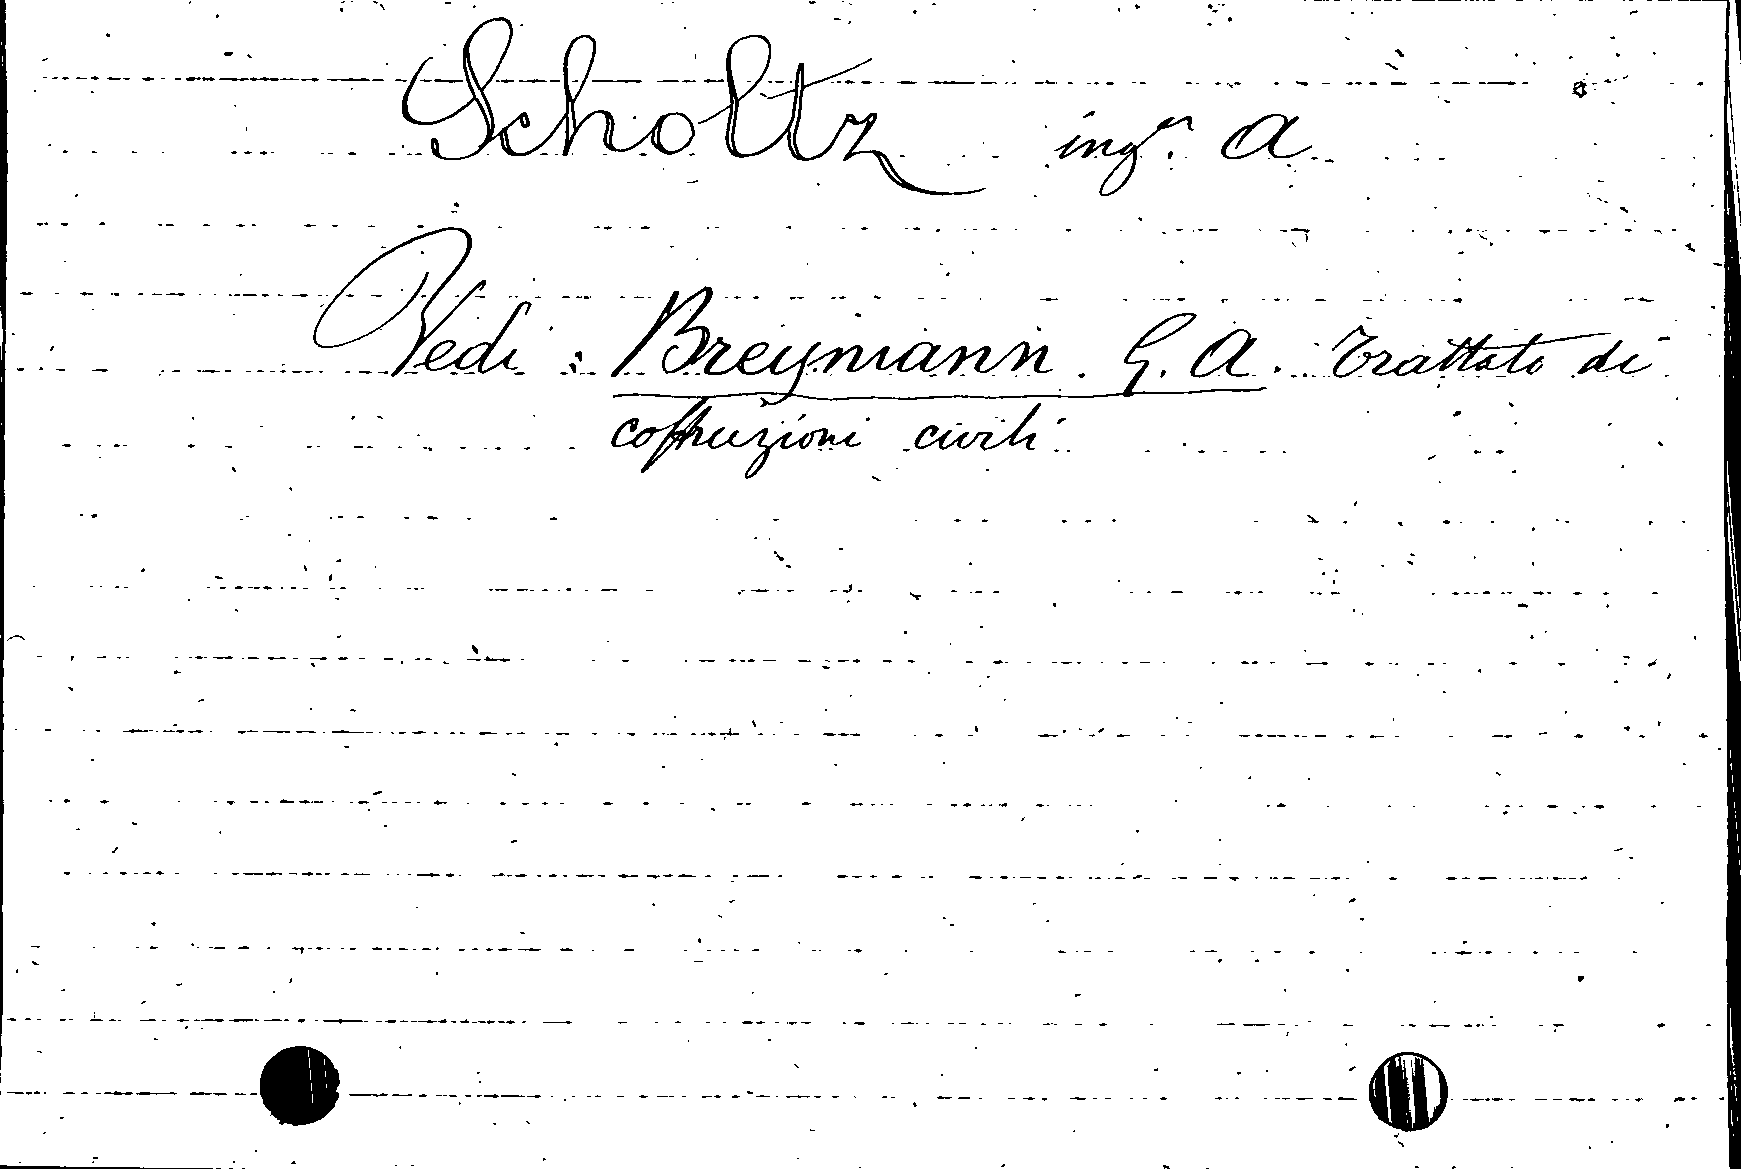 Scholtz ing.r A
Vedi : Breymann . G. A. Trattato di
costruzioni civili